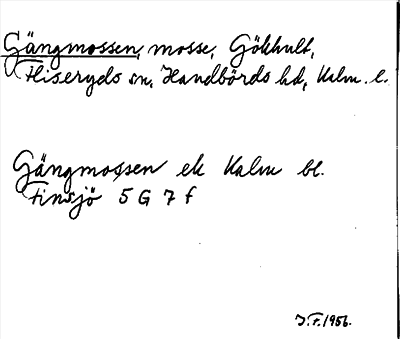 Gängmossen, mosse, Gökhult,
Fliseryds sn, Handbörds hd, Kalm. l.
Gängmossen ek Kalm bl.
Finsjö 5 G 7 f
J.F. 1956.